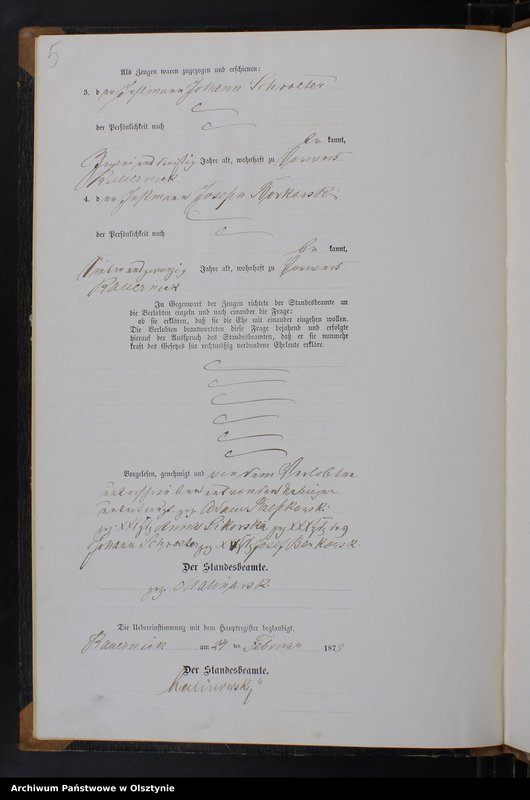 5
Als Zeugen waren zugezogen und erschienen:
3. der Instmann Johann Schroeter
der Persönlichkeit nach
be kannt,
Zweiunddreißig Jahre alt, wohnhaft zu Vorwerk
Rauernick
4. der Instmann Joseph
der Persönlichkeit nach
be kannt,
Siebenundzwanzig Jahre alt, wohnhaft zu Vorwerk
Rauernick
In Gegenwart der Zeugen richtete der Standesbeamte an
die Verlobten einzeln und nach einander die Frage:
ob sie erklären, daß sie die Ehe mit einander eingehen wollen.
Die Verlobten beantworteten diese Frage bejahend und erfolgte
hierauf der Ausspruch des Standesbeamten, daß er sie nunmehr
kraft des Gesetzes für rechtmäßig verbundene Eheleute erkläre.
Vorgelesen, genehmigt und von dem Verlobten
unterschrieben und von den Uebrigen
gez. Adam
gez. XXX Anna Sikorska gez. XXX
Johann Schroeter gez. XXX Josef
Der Standesbeamte.
gez. Malinowski
Die Uebereinstimmung mit dem Hauptregister beglaubigt.
Rauernick am 24 ten Februar 1878
Der Standesbeamte.
Malinowski
Archiwum Państwowe w Olsztynie